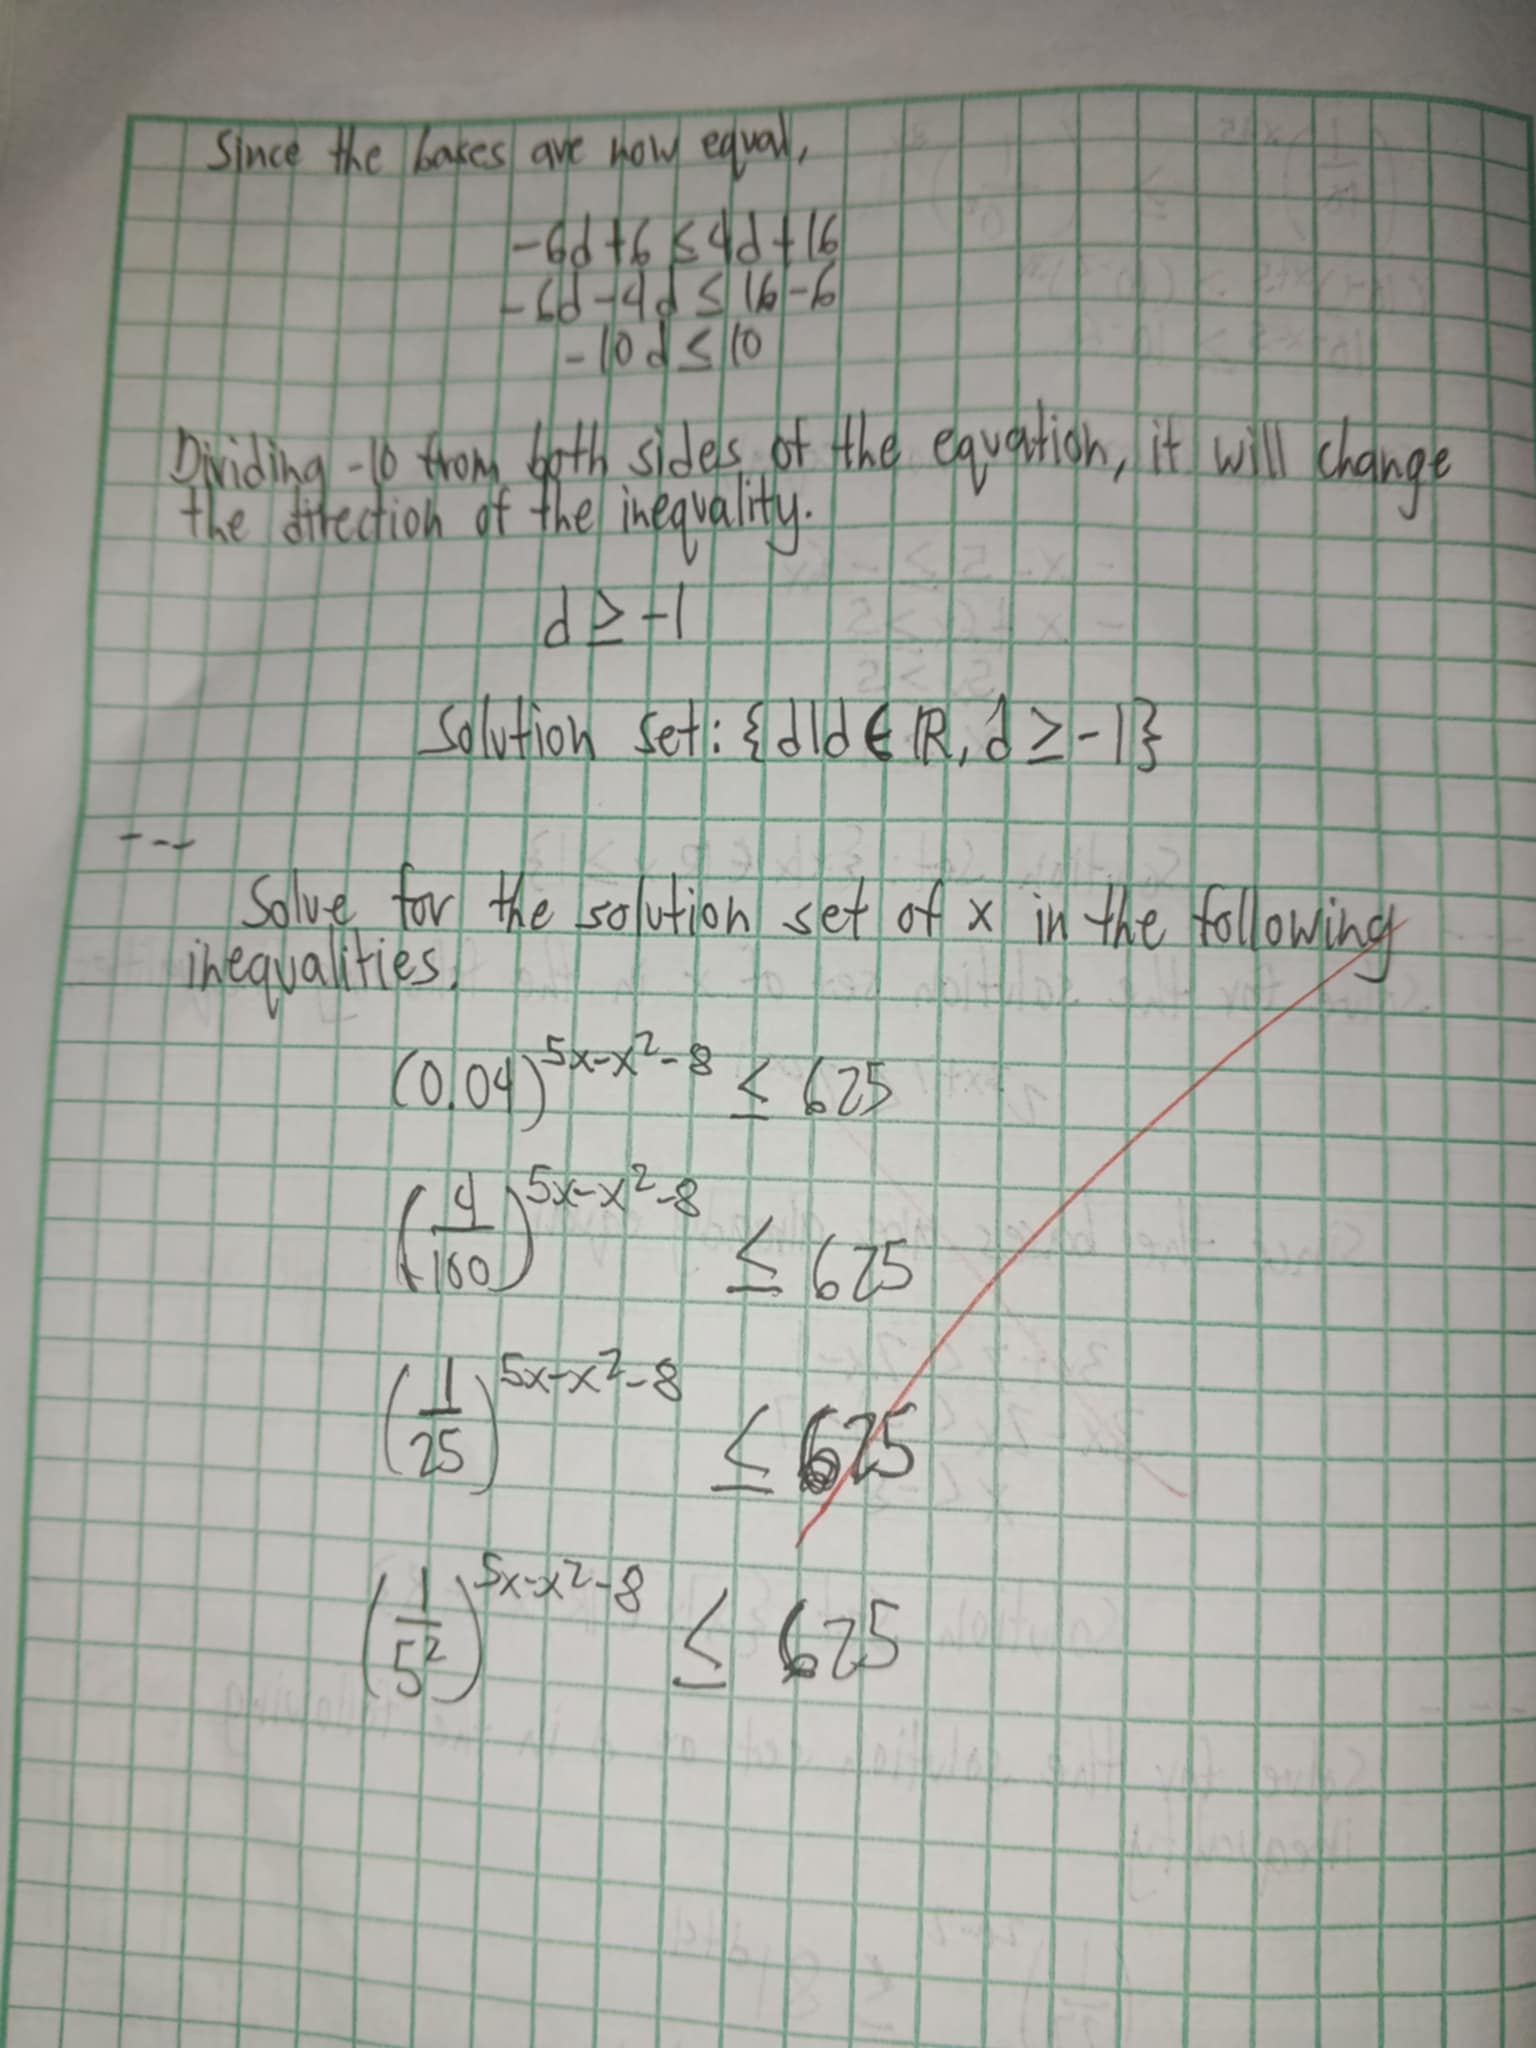 Since the bases are now equal,
-6d+6 ≤ 4d+16
-6d-4d ≤ 16-6
-10d ≤ 10
Dividing -10 from both sides of the equation, it will change
the direction of the inequality.
d ≥ -1
Solution set: {d|d ∈ ℝ, d ≥ -1}
---
Solve for the solution set of x in the following
inequalities.
(0.04)^(5x-x²-8) ≤ 625
(4/100)^(5x-x²-8) ≤ 625
(1/25)^(5x-x²-8) ≤ 625
(1/5²)^(5x-x²-8) ≤ 625